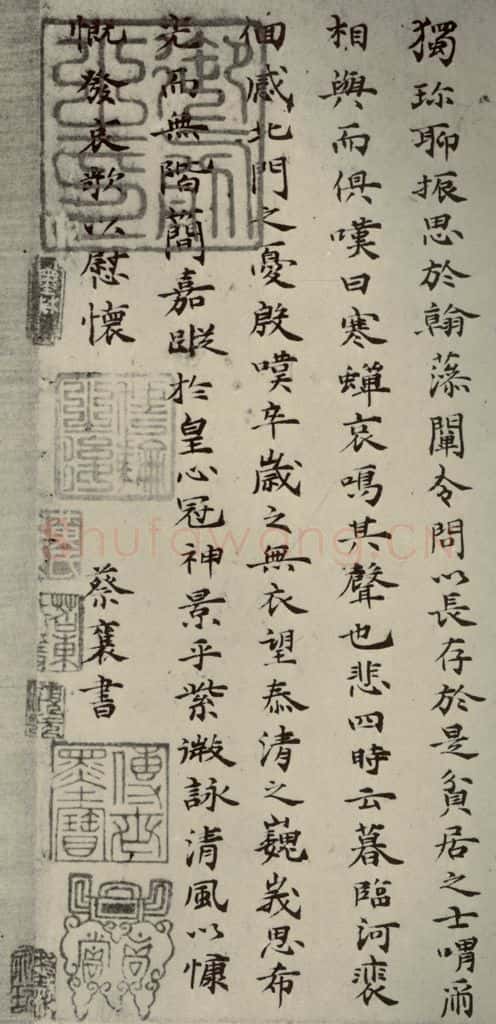 獨珍聊振思於翰藻闡令問以長存於是貧居之士喟爾
相與而俱嘆曰寒蟬哀鳴其聲也悲四時云暮臨河裵
佪感北門之憂殷嘆卒歲之無衣望泰清之巍峩思希
光而無階簡嘉蹤於皇心冠神景乎紫微詠清風以慷
慨發哀歌以慰懷
蔡襄書
shufawang.cn